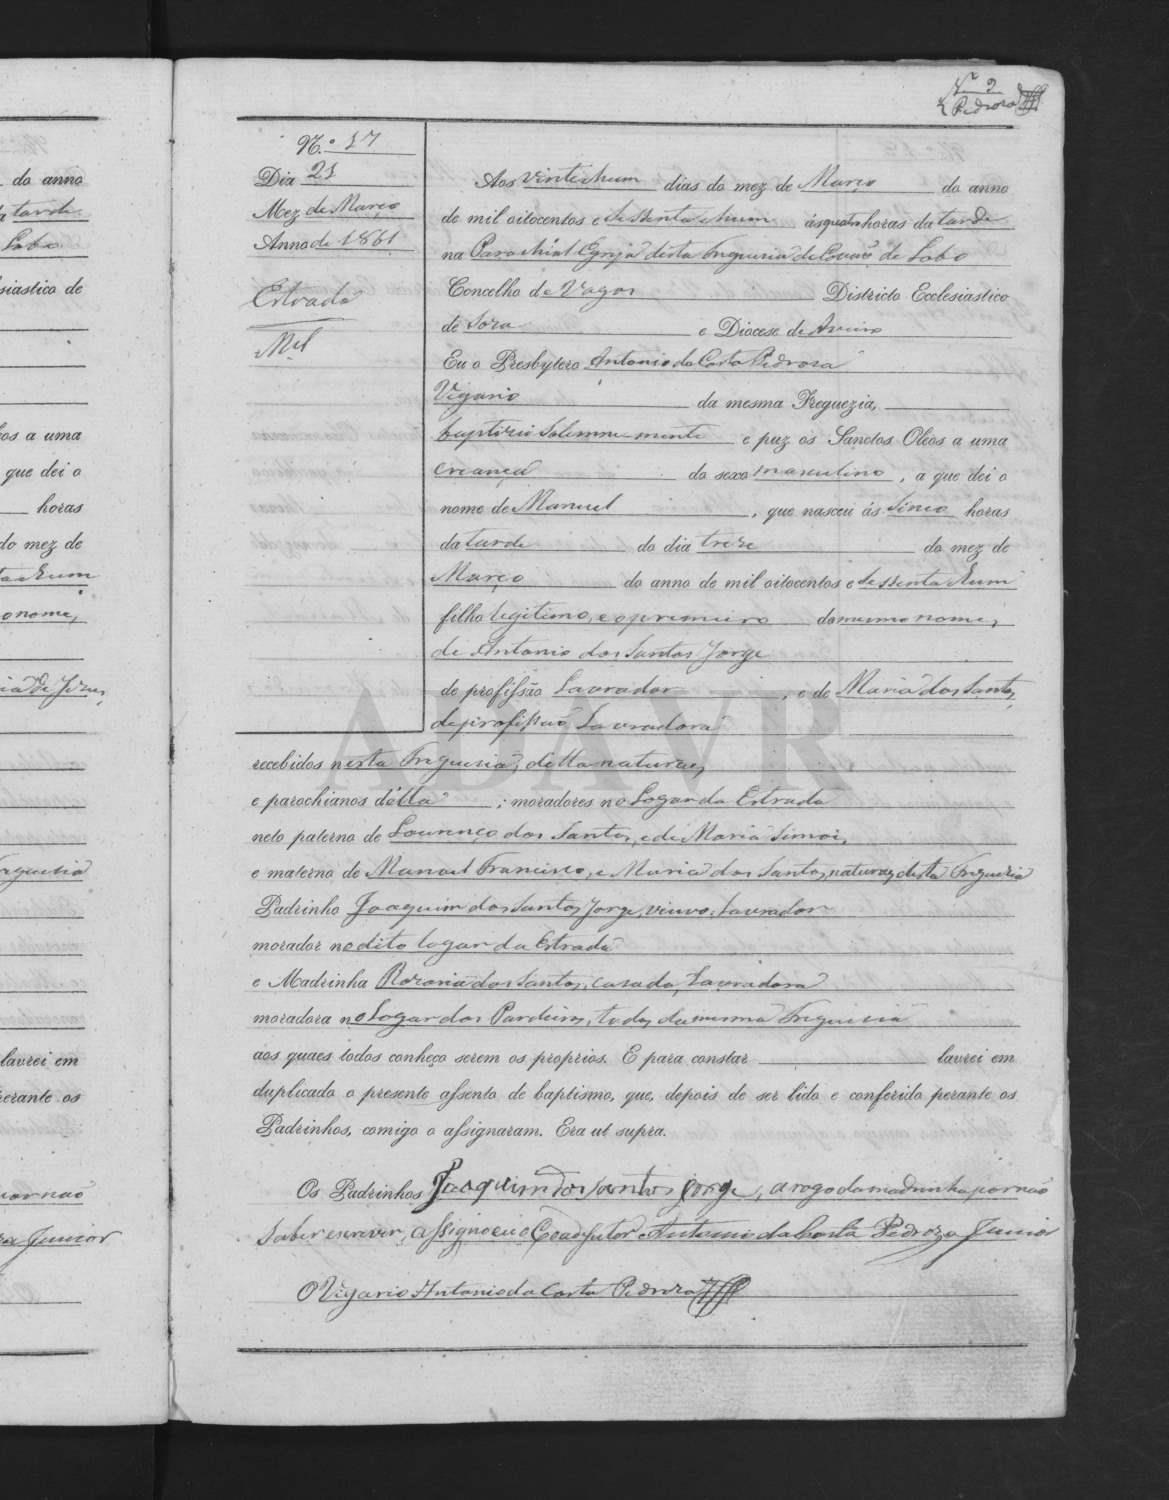 Nº 9
Pedroza
do anno
a tarde
Lobo
siastico de
os a uma
que dei o
horas
do mez de
onome,
lavrei em
perante os
por nao
Junior
N.º 17
Dia 21
Mez de Março
Anno de 1861
Estrada
Mel
Aos vintehum dias do mez de Março do anno
de mil oitocentos e sessenta ehum ás quatro horas da tarde
na Parochial Egreja desta Freguesia de Covão de Lobo
Concelho de Vagos Districto Ecclesiastico
de Soza e Diocese de Aveiro
Eu o Presbytero Antonio da Costa Pedroza
Vigario da mesma Freguezia,
baptizei Solemne-mente e puz os Sanctos Oleos a uma
creança do sexo masculino, a que dei o
nome de Manuel, que nasceu ás sinco horas
da tarde do dia treze do mez de
Março do anno de mil oitocentos e sessenta ehum
filho legitimo, e o primeiro do mesmo nome,
de Antonio dos Santos Jorge
de profissão Lavrador, e de Maria dos Santos,
de profissão Lavradora
recebidos nesta Freguesia, della naturaes,
e parochianos d'ella; moradores no Logar da Estrada
neto paterno de Lourenço dos Santos, e de Maria Simoi,
e materno de Manoel Francisco, e Maria dos Santos, naturaes desta Freguesia
Padrinho Joaquim dos Santos Jorge, viuvo, Lavrador
morador no dito logar da Estrada
e Madrinha Rozaria dos Santos, casada, Lavradora
moradora no Logar dos Pardeiros, todos da mesma Freguesia
aos quaes todos conheço serem os proprios. E para constar lavrei em
duplicado o presente assento de baptismo, que, depois de ser lido e conferido perante os
Padrinhos, comigo o assignaram. Era ut supra.
Os Padrinhos Joaquim dos Santos Jorge, a rogo da madrinha por nao
saber escrever, assigno eu o Coadjutor Antonio da Costa Pedroza Junior
O Vigario Antonio da Costa Pedroza
ADAVR